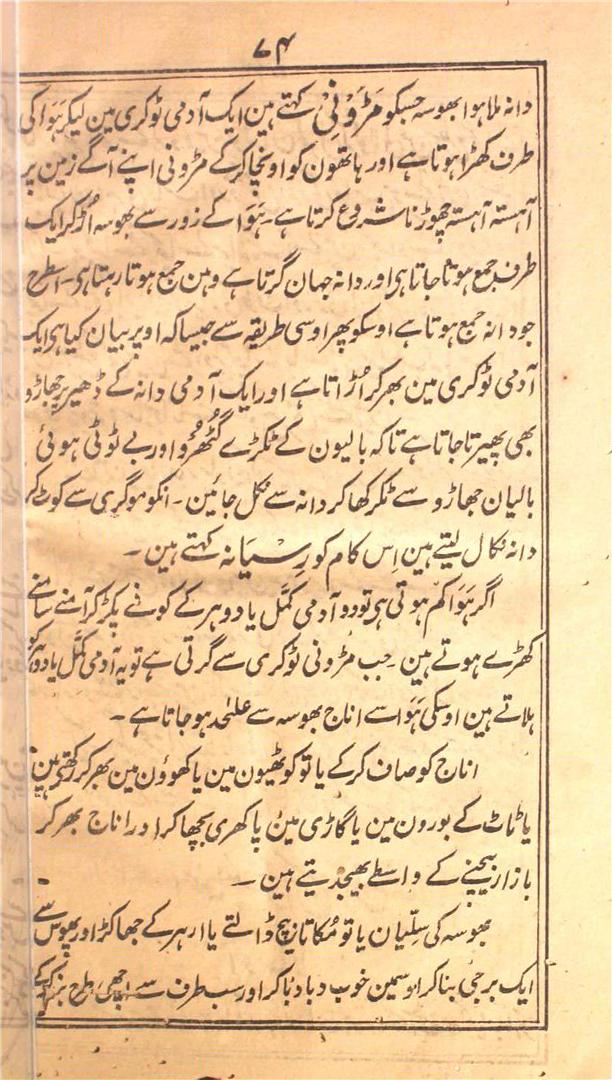 ۷۴
دانہ ملا ہوا بھوسہ جسکو مَڑَوْنِیْ کہتے ہین ایک آدمی ٹوکری مین لیکر ہَوَا کی
طرف کھڑا ہوتا ہے اور ہاتھون کو اونچا کر کے مڑونی اپنے آگے زمین پر
آہستہ آہستہ چھوڑنا شروع کرتا ہے۔ ہَوَا کے زور سے بھوسہ اُڑ کر ایک
طرف جمع ہوتا جاتا ہی اور دانہ جہان گرتا ہے وہین جمع ہوتا رہتا ہی۔ اسطرح
جو دانہ جمع ہوتا ہے اوسکو پھر اوسی طریقہ سے جیسا کہ اوپر بیان کیا ہی ایک
آدمی ٹوکری مین بھر کر اُڑاتا ہے اور ایک آدمی دانہ کے ڈھیر پر جھاڑو
بھی پھیرتا جاتا ہے تاکہ بالیون کے ٹکڑے گُٹھرُو اور بے ٹوٹی ہوئی
بالیان جھاڑو سے ٹکر کھا کر دانہ سے نکل جائین۔ انکو موگری سے کوٹ کر
دانہ نکال لیتے ہین اِس کام کو رِسیَانہ کہتے ہین۔
اگر ہَوَا کم ہوتی ہی تو دو آدمی کمَّل یا دوہر کے کونے پکڑ کر آمنے سامنے
کھڑے ہوتے ہین۔ جب مڑونی ٹوکری سے گرتی ہے تو یہ آدمی کمَّل یا دوہر کو
ہلاتے ہین اوسکی ہَوَا سے اناج بھوسہ سے علٰیحدہ ہو جاتا ہے۔
اناج کو صاف کر کے یا تو کوٹھیون مین یا کھوؤن مین بھر کر رکھتے ہین
یا ٹاٹ کے بورون مین یا گاڑی مین پاکھری بچھا کر اور اناج بھر کر
بازار بیچنے کے واسطے بھیجدیتے ہین۔
بھوسہ کی سِلّیان یا تو مُکاتا بیچ ڈالتے یا ارہر کے جھاکڑ اور پھوس سے
ایک برجی بنا کر اوسمین خوب دبا دبا کر اور سب طرف سے اچھی طرح